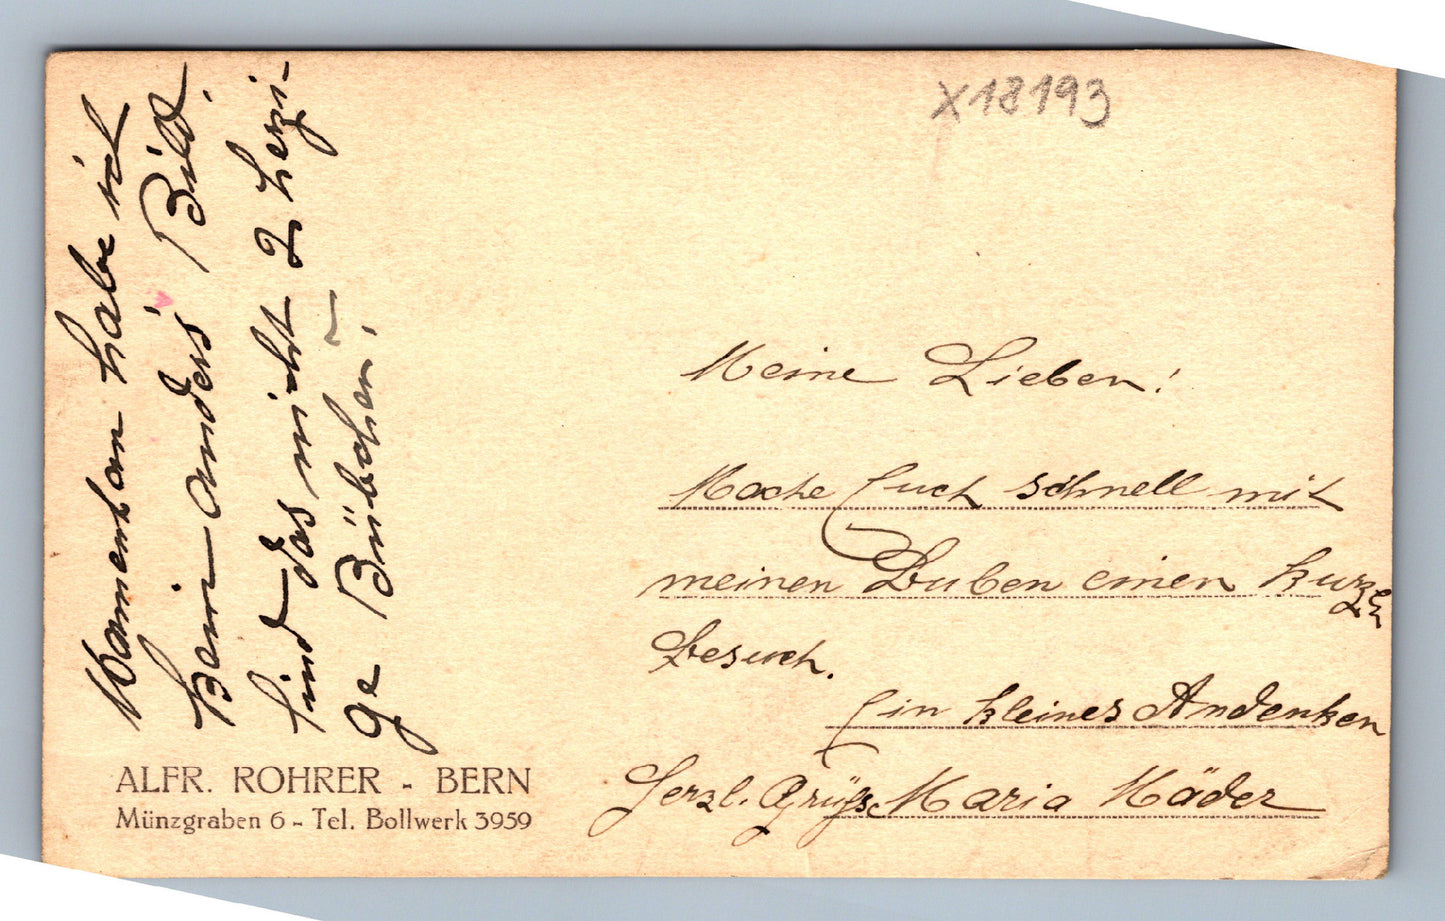 X18193
Meine Lieben!
Mache Euch schnell mit
meinen Buben einen kurzen
Besuch.
Ein kleines Andenken
Herzl. Grüsse Maria Mäder
habe ich
kein anders Bild.
sind das nicht 2 herzi-
ge Bübchen!
ALFR. ROHRER - BERN
Münzgraben 6 - Tel. Bollwerk 3959